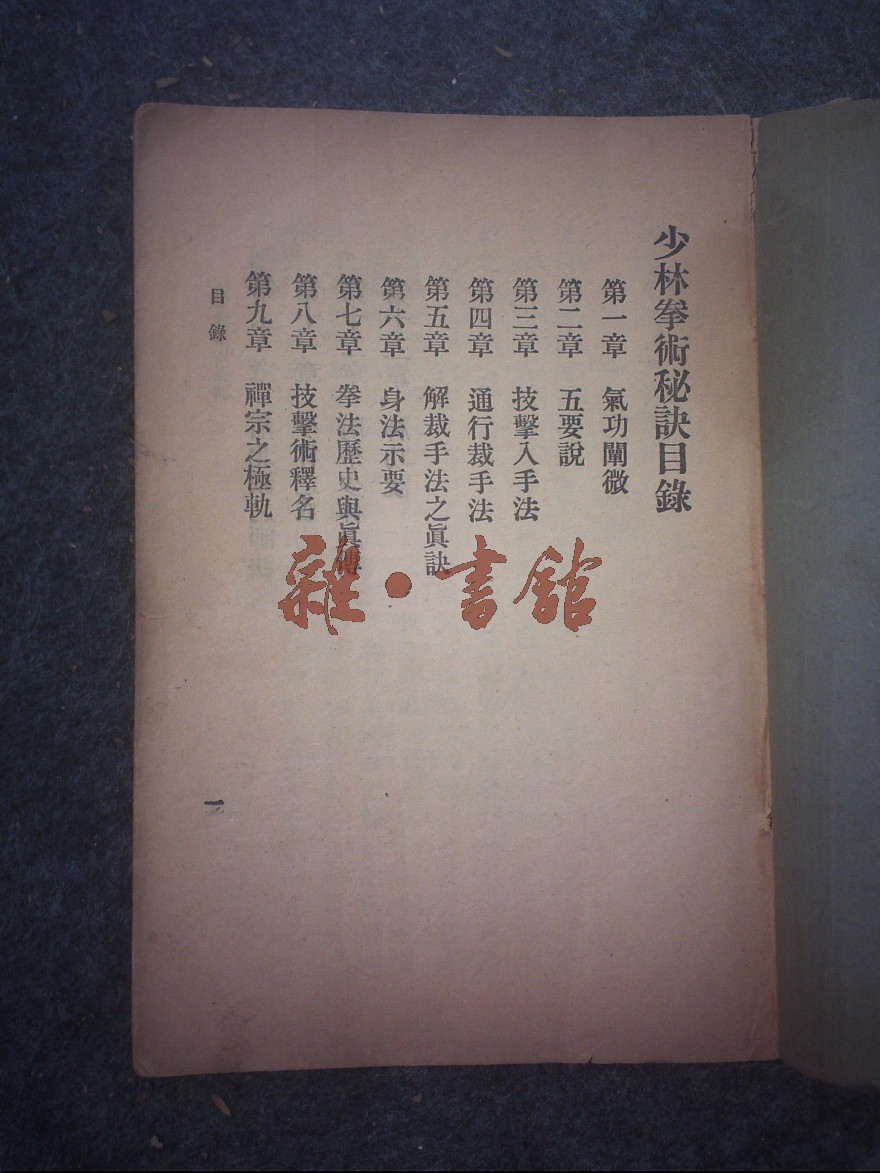 少林拳術秘訣目錄
第一章　氣功闡微
第二章　五要說
第三章　技擊入手法
第四章　通行裁手法
第五章　解裁手法之眞訣
第六章　身法示要
第七章　拳法歷史與眞傳
第八章　技擊術釋名
第九章　禪宗之極軌
目錄
一
雜·書館